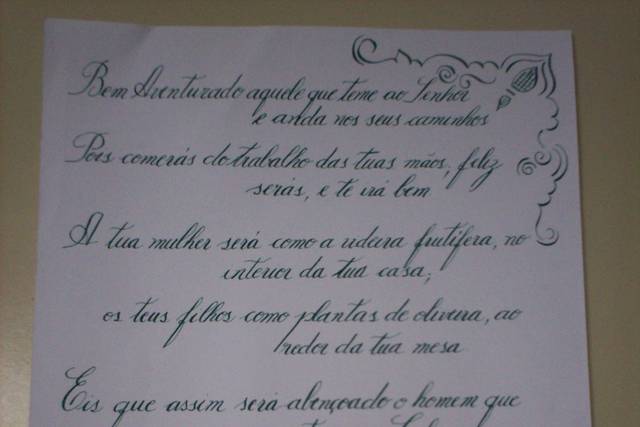 Bem Aventurado aquele que teme ao Senhor
e anda nos seus caminhos
Pois comerás do trabalho das tuas mãos, feliz
serás, e te irá bem
A tua mulher será como a videira frutífera, no
interior da tua casa;
os teus filhos como plantas de oliveira, ao
redor da tua mesa
Eis que assim será abençoado o homem que